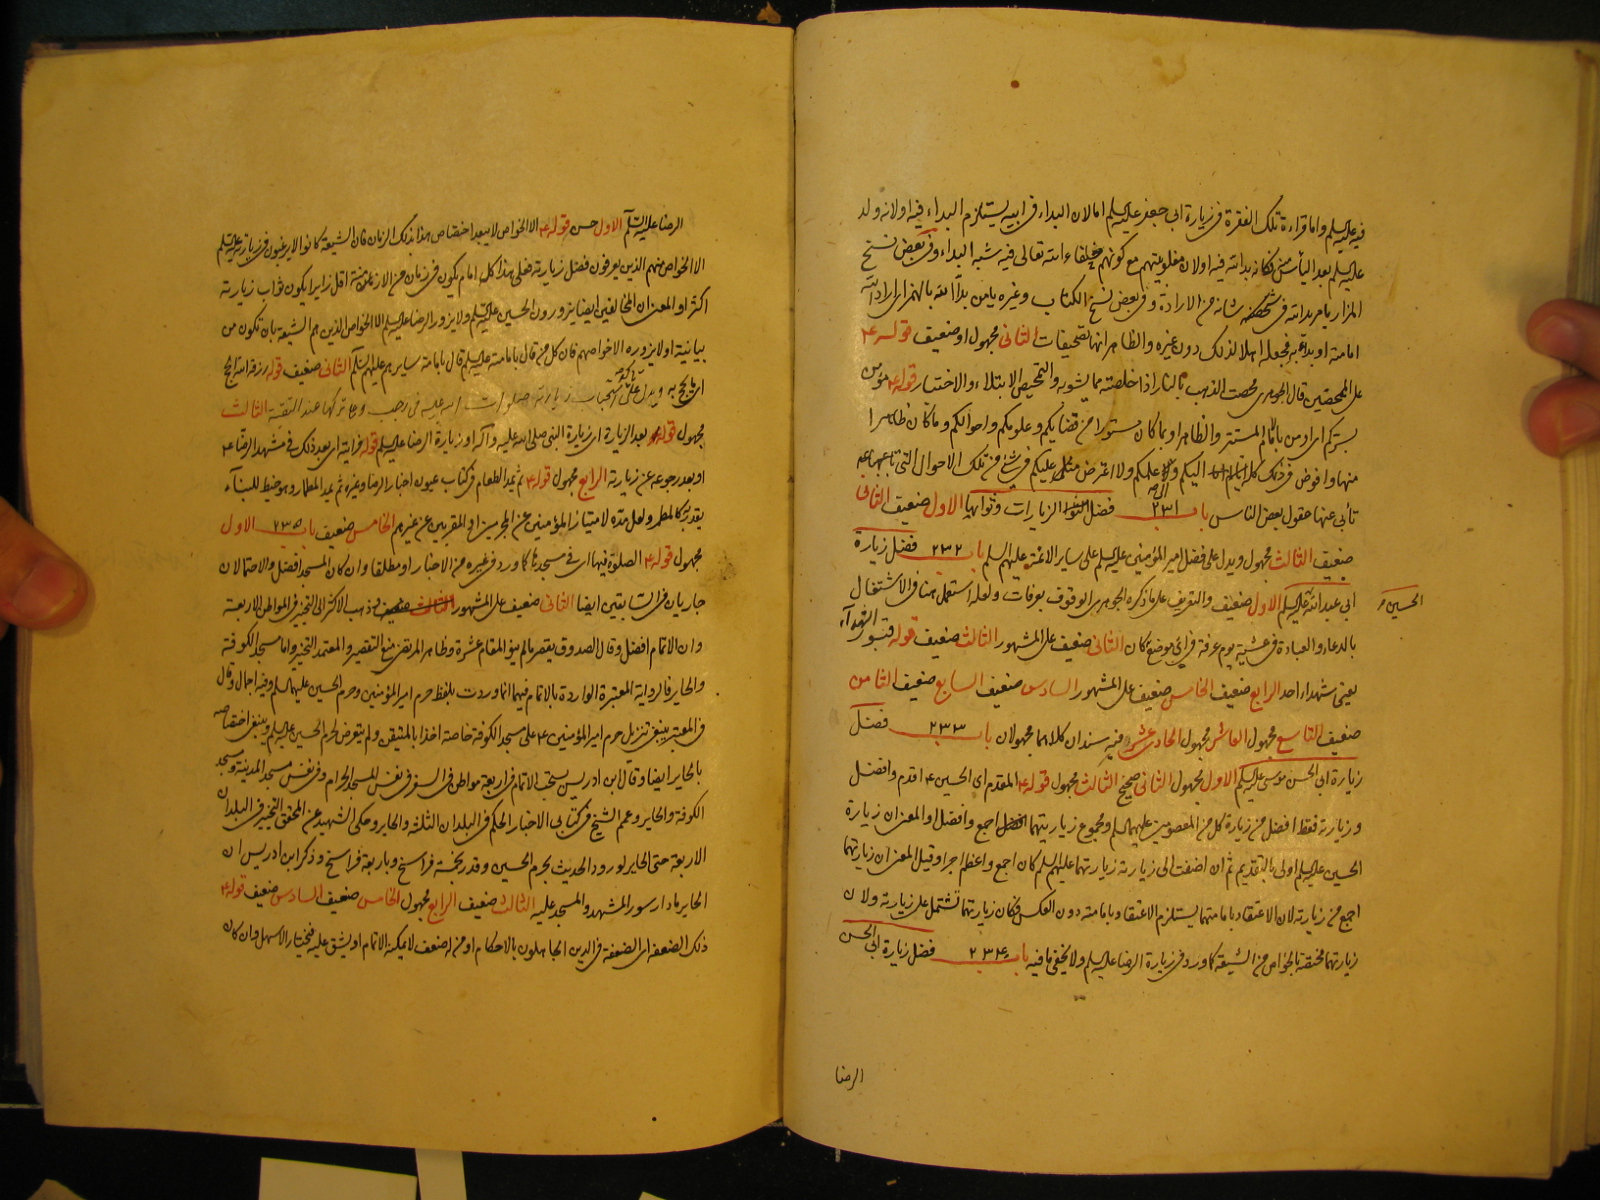 فيه عليه السلم واما قراءة تلك الفقرة في زيارة ابي جعفر عليه السلم اما لان البداء في ابيه يستلزم البداء فيه او لانه ولد
عليه السلم بعد الياس منه فكانه بدا لله فيه او لان مغلوبيتهم مع كونهم خلفاء الله تعالى فيه شبه البداء وفي بعض نسخ
المزار يا مريد الله في شانه من الارادة وفي بعض نسخ الكتاب وغيره يا من بدا لله بالهمز اي اراد الله
امامته او بدا به فجعله اهلا لذلك دون غيره والظاهر انها تصحيفات الثاني مجهول او ضعيف قوله ع
على الممحصين قال الجوهري محصت الذهب بالنار اذا خلصته مما يشوبه والتمحيص الابتلاء والاختبار قوله ع مؤمن
بسركم اي او من بامامكم المستتر والظاهر او بما كان مستورا من فضايلكم وعلومكم واحوالكم وما كان ظاهرا
منها وافوض في ذلك كله اليكم ولا اعترض عليكم في شيء من تلك الاحوال التي
تأبى عنها عقول بعض الناس باب ٢٣١ فضل الزيارات وثوابها الاول ضعيف الثاني
ضعيف الثالث مجهول ويدل على فضل امير المؤمنين عليه السلم على ساير الائمة عليهم السلم باب ٢٣٢ فضل زيارة
ابي عبد الله عليه السلم الاول ضعيف والتعريف على ما ذكره الجوهري الوقوف بعرفات ولعله استعمل هنا في الاشتغال
الحسين
بالدعاء والعبادة في عشية يوم عرفة في اي موضع كان الثاني ضعيف على المشهور الثالث ضعيف قوله قبور الشهداء
يعني شهداء احد الرابع ضعيف الخامس ضعيف على المشهور السادس ضعيف السابع ضعيف الثامن
ضعيف التاسع مجهول العاشر مجهول الحادي عشر فيه سندان كلاهما مجهولان باب ٢٣٣ فضل
زيارة ابي الحسن موسى عليه السلم الاول مجهول الثاني صحيح الثالث مجهول قوله ع المقدم اي الحسين ع اقدم وافضل
وزيارته فقط افضل من زيارة كل من المعصومين عليهما السلم ومجموع زيارتيهما اجمع وافضل او المعنى ان زيارة
الحسين عليه السلم اولى بالتقديم ثم ان اضفت الى زيارته زيارتهما عليهم السلم كان اجمع واعظم اجرا وقيل المعنى ان زيارتهما
اجمع من زيارته لان الاعتقاد بامامتهما يستلزم الاعتقاد بامامته دون العكس فكان زيارتهما تشتمل على زيارته ولان
زيارتهما مختصة بالخواص من الشيعة كما ورد في زيارة الرضا عليه السلم ولا يخفى ما فيه باب ٢٣٤ فضل زيارة ابي الحسن
الرضا
الرضا عليه السلم الاول حسن قوله ع الا الخواص لا يبعد اختصاص هذا بذلك الزمان فان الشيعة كانوا لا يرغبون في زيارته عليه السلم
الا الخواص منهم الذين يعرفون فضل زيارته فعلى هذا كل امام يكون في زمان من الازمنة اقل زايرا يكون ثواب زيارته
اكثر او المعنى ان المخالفين ايضا يزورون الحسين عليه السلم ولا يزور الرضا عليه السلم الا الخواص الذين هم الشيعة بان تكون من
بيانية او لا يزوره الا خواصهم فان كل من قال بامامته عليه السلم قال بامامة سايرهم عليهم السلم الثاني ضعيف قوله رزقه الله الحج
اي ما يحج به ويدل على تاكد استحباب زيارته صلوات الله عليه في رجب وعلى تركها عند التقية الثالث
مجهول قوله بعد الزيارة اي زيارة النبي صلى الله عليه وآله او زيارة الرضا عليه السلم قوله فرايته اي بعد ذلك في مشهد الرضا ع
او بعد رجوعه عن زيارته الرابع مجهول قوله ع ثم يمد الطعام في كتاب عيون اخبار الرضا وغيره ثم يمد المطمار وهو خيط للبناء
يقدر به كالمطمر ولعل مده لامتياز المؤمنين عن المجرمين او المقربين عن غيرهم الخامس ضعيف باب ٢٣٥ الاول
مجهول قوله ع الصلوة فيها اي في مسجدها كما ورد في غيره من الاخبار او مطلقا وان كان المسجد افضل والاحتمالان
جاريان في السابقين ايضا الثاني ضعيف على المشهور ذهب الاكثر الى التخيير في المواطن الاربعة
وان الاتمام افضل وقال الصدوق يقصر ما لم ينو المقام عشرة وظاهر المرتضى منع التقصير والمعتمد التخيير واما مسجد الكوفة
والحاير فالرواية المعتبرة الواردة بالاتمام فيهما انما وردت بلفظ حرم امير المؤمنين وحرم الحسين عليهما السلم وفيه اجمال وقال
في المعتبر ينبغي تنزيل حرم امير المؤمنين ع على مسجد الكوفة خاصة اخذا بالمتيقن ولم يتعرض لحرم الحسين عليه السلم وينبغي اختصاصه
بالحاير ايضا وقال ابن ادريس يستحب الاتمام في اربعة مواطن في السفر في نفس المسجد الحرام وفي نفس مسجد المدينة ومسجد
الكوفة والحاير وعمم الشيخ في كتابي الاخبار الحكم في البلدان الثلثة والحاير وحكى الشهيد عن المحقق التخيير في البلدان
الاربعة حتى الحاير لورود الحديث بحرم الحسين وقدر بخمسة فراسخ وباربعة فراسخ وذكر ابن ادريس ان
الحاير ما دار سور المشهد والمسجد عليه الثالث ضعيف الرابع مجهول الخامس ضعيف السادس ضعيف قوله ع
ذلك الضعفة اي الضعفة في الدين الجاهلون بالاحكام او من له ضعف لا يمكنه الاتمام او يشق عليه فيختار الاسهل وان كان